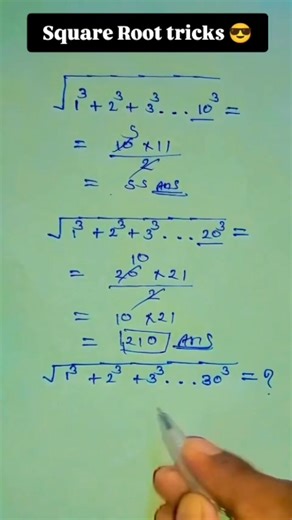 Square Root tricks 😎
√1³ + 2³ + 3³ . . . 10³ =
5
= 10 × 11
2
= 55 Ans
√1³ + 2³ + 3³ . . . 20³ =
10
= 20 × 21
2
= 10 × 21
= 210 Ans
√1³ + 2³ + 3³ . . . 30³ = ?